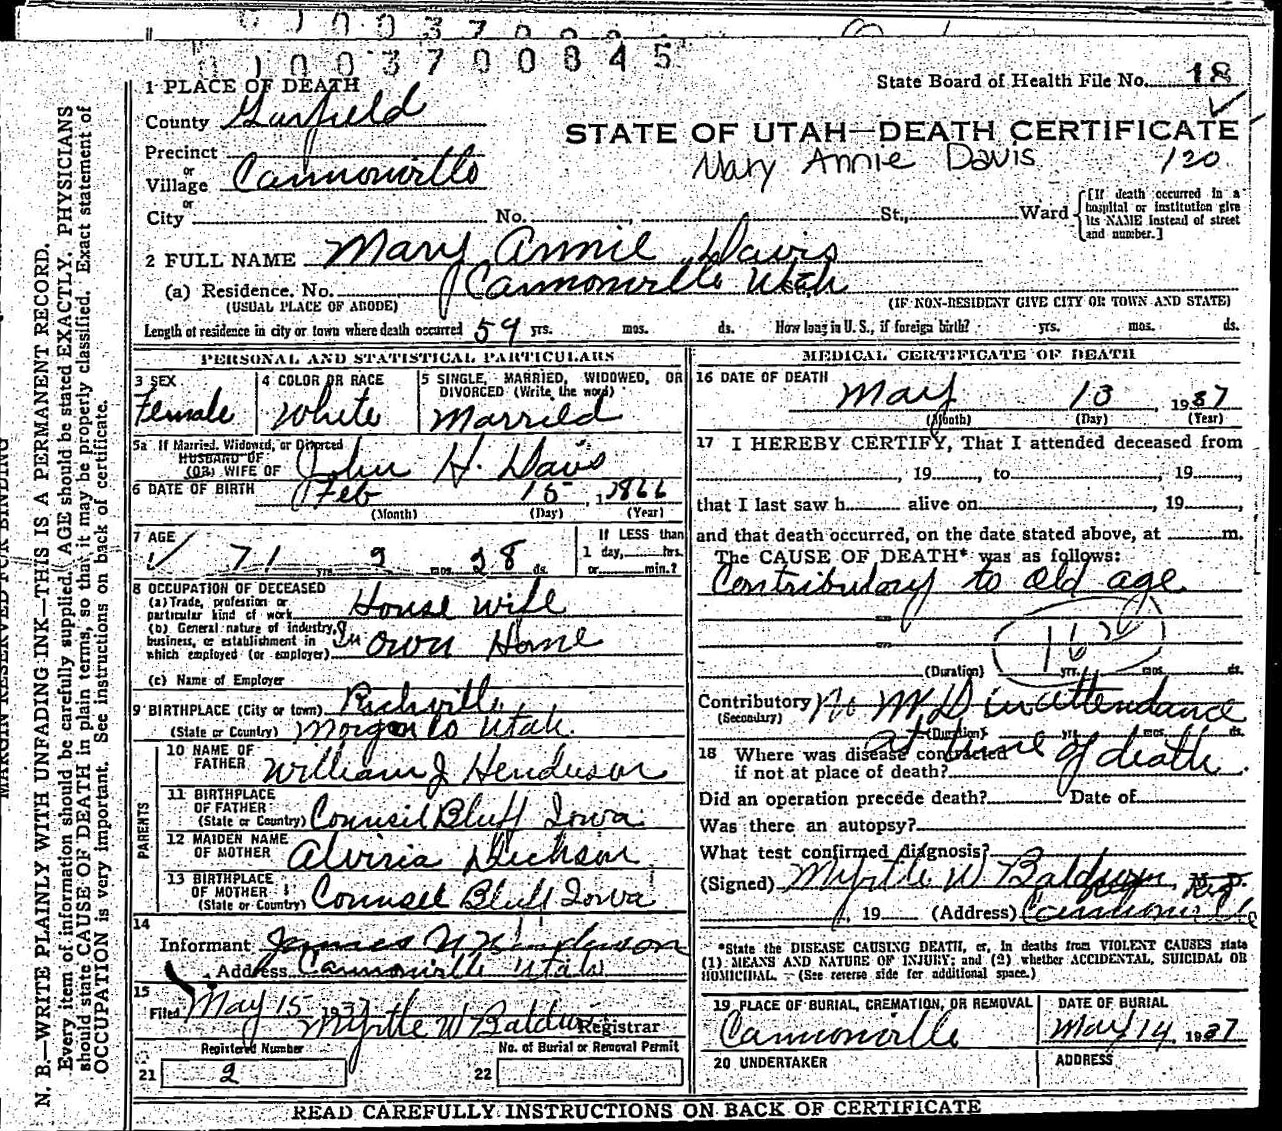 1003700845
1 PLACE OF DEATH
State Board of Health File No. 18
County Garfield
STATE OF UTAH—DEATH CERTIFICATE
Precinct
Mary Annie Davis 120
or
Village Cannonville
or
City No. St., Ward
[If death occurred in a
hospital or institution give
its NAME instead of street
and number.]
2 FULL NAME Mary Annie Davis
(a) Residence. No. Cannonville Utah
(USUAL PLACE OF ABODE) (IF NON-RESIDENT GIVE CITY OR TOWN AND STATE)
Length of residence in city or town where death occurred 59 yrs. mos. ds. How long in U. S., if foreign birth? yrs. mos. ds.
PERSONAL AND STATISTICAL PARTICULARS
3 SEX
Female
4 COLOR OR RACE
White
5 SINGLE, MARRIED, WIDOWED, OR
DIVORCED (Write the word)
Married
5a If Married, Widowed, or Divorced
HUSBAND OF
(OR) WIFE OF John H. Davis
6 DATE OF BIRTH Feb 15 1866
(Month) (Day) (Year)
7 AGE
71 yrs. 2 mos. 28 ds.
If LESS than
1 day, hrs.
or min.?
8 OCCUPATION OF DECEASED
(a) Trade, profession or
particular kind of work House Wife
(b) General nature of industry,
business, or establishment in
which employed (or employer) In own Home
(c) Name of Employer
9 BIRTHPLACE (City or town) Richville
(State or Country) Morgan Co Utah.
PARENTS
10 NAME OF
FATHER William J Henderson
11 BIRTHPLACE
OF FATHER
(State or Country) Counsil Bluff Iowa
12 MAIDEN NAME
OF MOTHER Alviria Dickson
13 BIRTHPLACE
OF MOTHER
(State or Country) Counsel Bluff Iowa
14
Informant James W Henderson
Address Cannonville Utah
15
Filed May 15 1937 Myrtle W Baldwin
Registrar
Registered Number No. of Burial or Removal Permit
21 2 22
MEDICAL CERTIFICATE OF DEATH
16 DATE OF DEATH
May 13, 1937
(Month) (Day) (Year)
17 I HEREBY CERTIFY, That I attended deceased from
, 19 , to , 19 ,
that I last saw h alive on , 19 ,
and that death occurred, on the date stated above, at m.
The CAUSE OF DEATH* was as follows:
Contributory to old age
162
(Duration) yrs. mos. ds.
Contributory No M D in attendance
(Secondary)
(Duration) yrs. mos. ds.
at time of death
18 Where was disease contracted
if not at place of death?
Did an operation precede death? Date of
Was there an autopsy?
What test confirmed diagnosis?
(Signed) Myrtle W Baldwin Reg.
, 19 (Address) Cannonville
*State the DISEASE CAUSING DEATH, or, in deaths from VIOLENT CAUSES state
(1) MEANS AND NATURE OF INJURY; and (2) whether ACCIDENTAL, SUICIDAL OR
HOMICIDAL. — (See reverse side for additional space.)
19 PLACE OF BURIAL, CREMATION, OR REMOVAL
Cannonville
DATE OF BURIAL
May 14 1937
20 UNDERTAKER
ADDRESS
READ CAREFULLY INSTRUCTIONS ON BACK OF CERTIFICATE
MARGIN RESERVED FOR BINDING
N. B.—WRITE PLAINLY WITH UNFADING INK—THIS IS A PERMANENT RECORD.
Every item of information should be carefully supplied. AGE should be stated EXACTLY. PHYSICIANS
should state CAUSE OF DEATH in plain terms, so that it may be properly classified. Exact statement of
OCCUPATION is very important. See instructions on back of certificate.